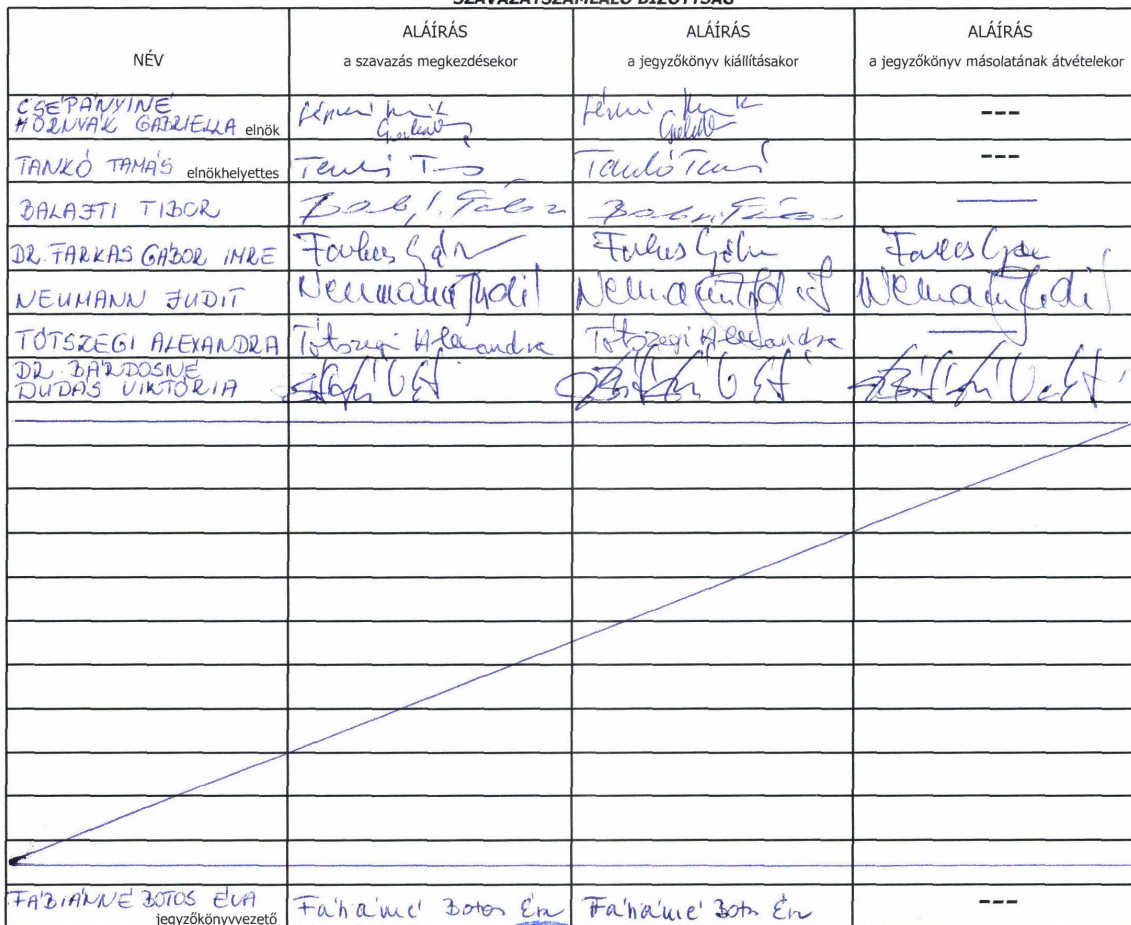 SZAVAZATSZÁMLÁLÓ BIZOTTSÁG
NÉV
ALÁÍRÁS
a szavazás megkezdésekor
ALÁÍRÁS
a jegyzőkönyv kiállításakor
ALÁÍRÁS
a jegyzőkönyv másolatának átvételekor
CSEPÁNYINÉ
HORNYÁK GABRIELLA elnök
---
TANKÓ TAMÁS elnökhelyettes
Tankó Tamás
---
BALAJTI TIBOR
DR. FARKAS GÁBOR IMRE
Farkas Gábor
Farkas Gábor
Farkas Gábor
NEUMANN JUDIT
Neumann Judit
Neumann Judit
Neumann Judit
TÓTSZEGI ALEXANDRA
Tótszegi Alexandra
Tótszegi Alexandra
DR. BÁRDOSNÉ
DUDÁS VIKTÓRIA
FÁBIÁNNÉ BOTOS ÉVA
jegyzőkönyvvezető
Fábiánné Botos Éva
Fábiánné Botos Éva
---